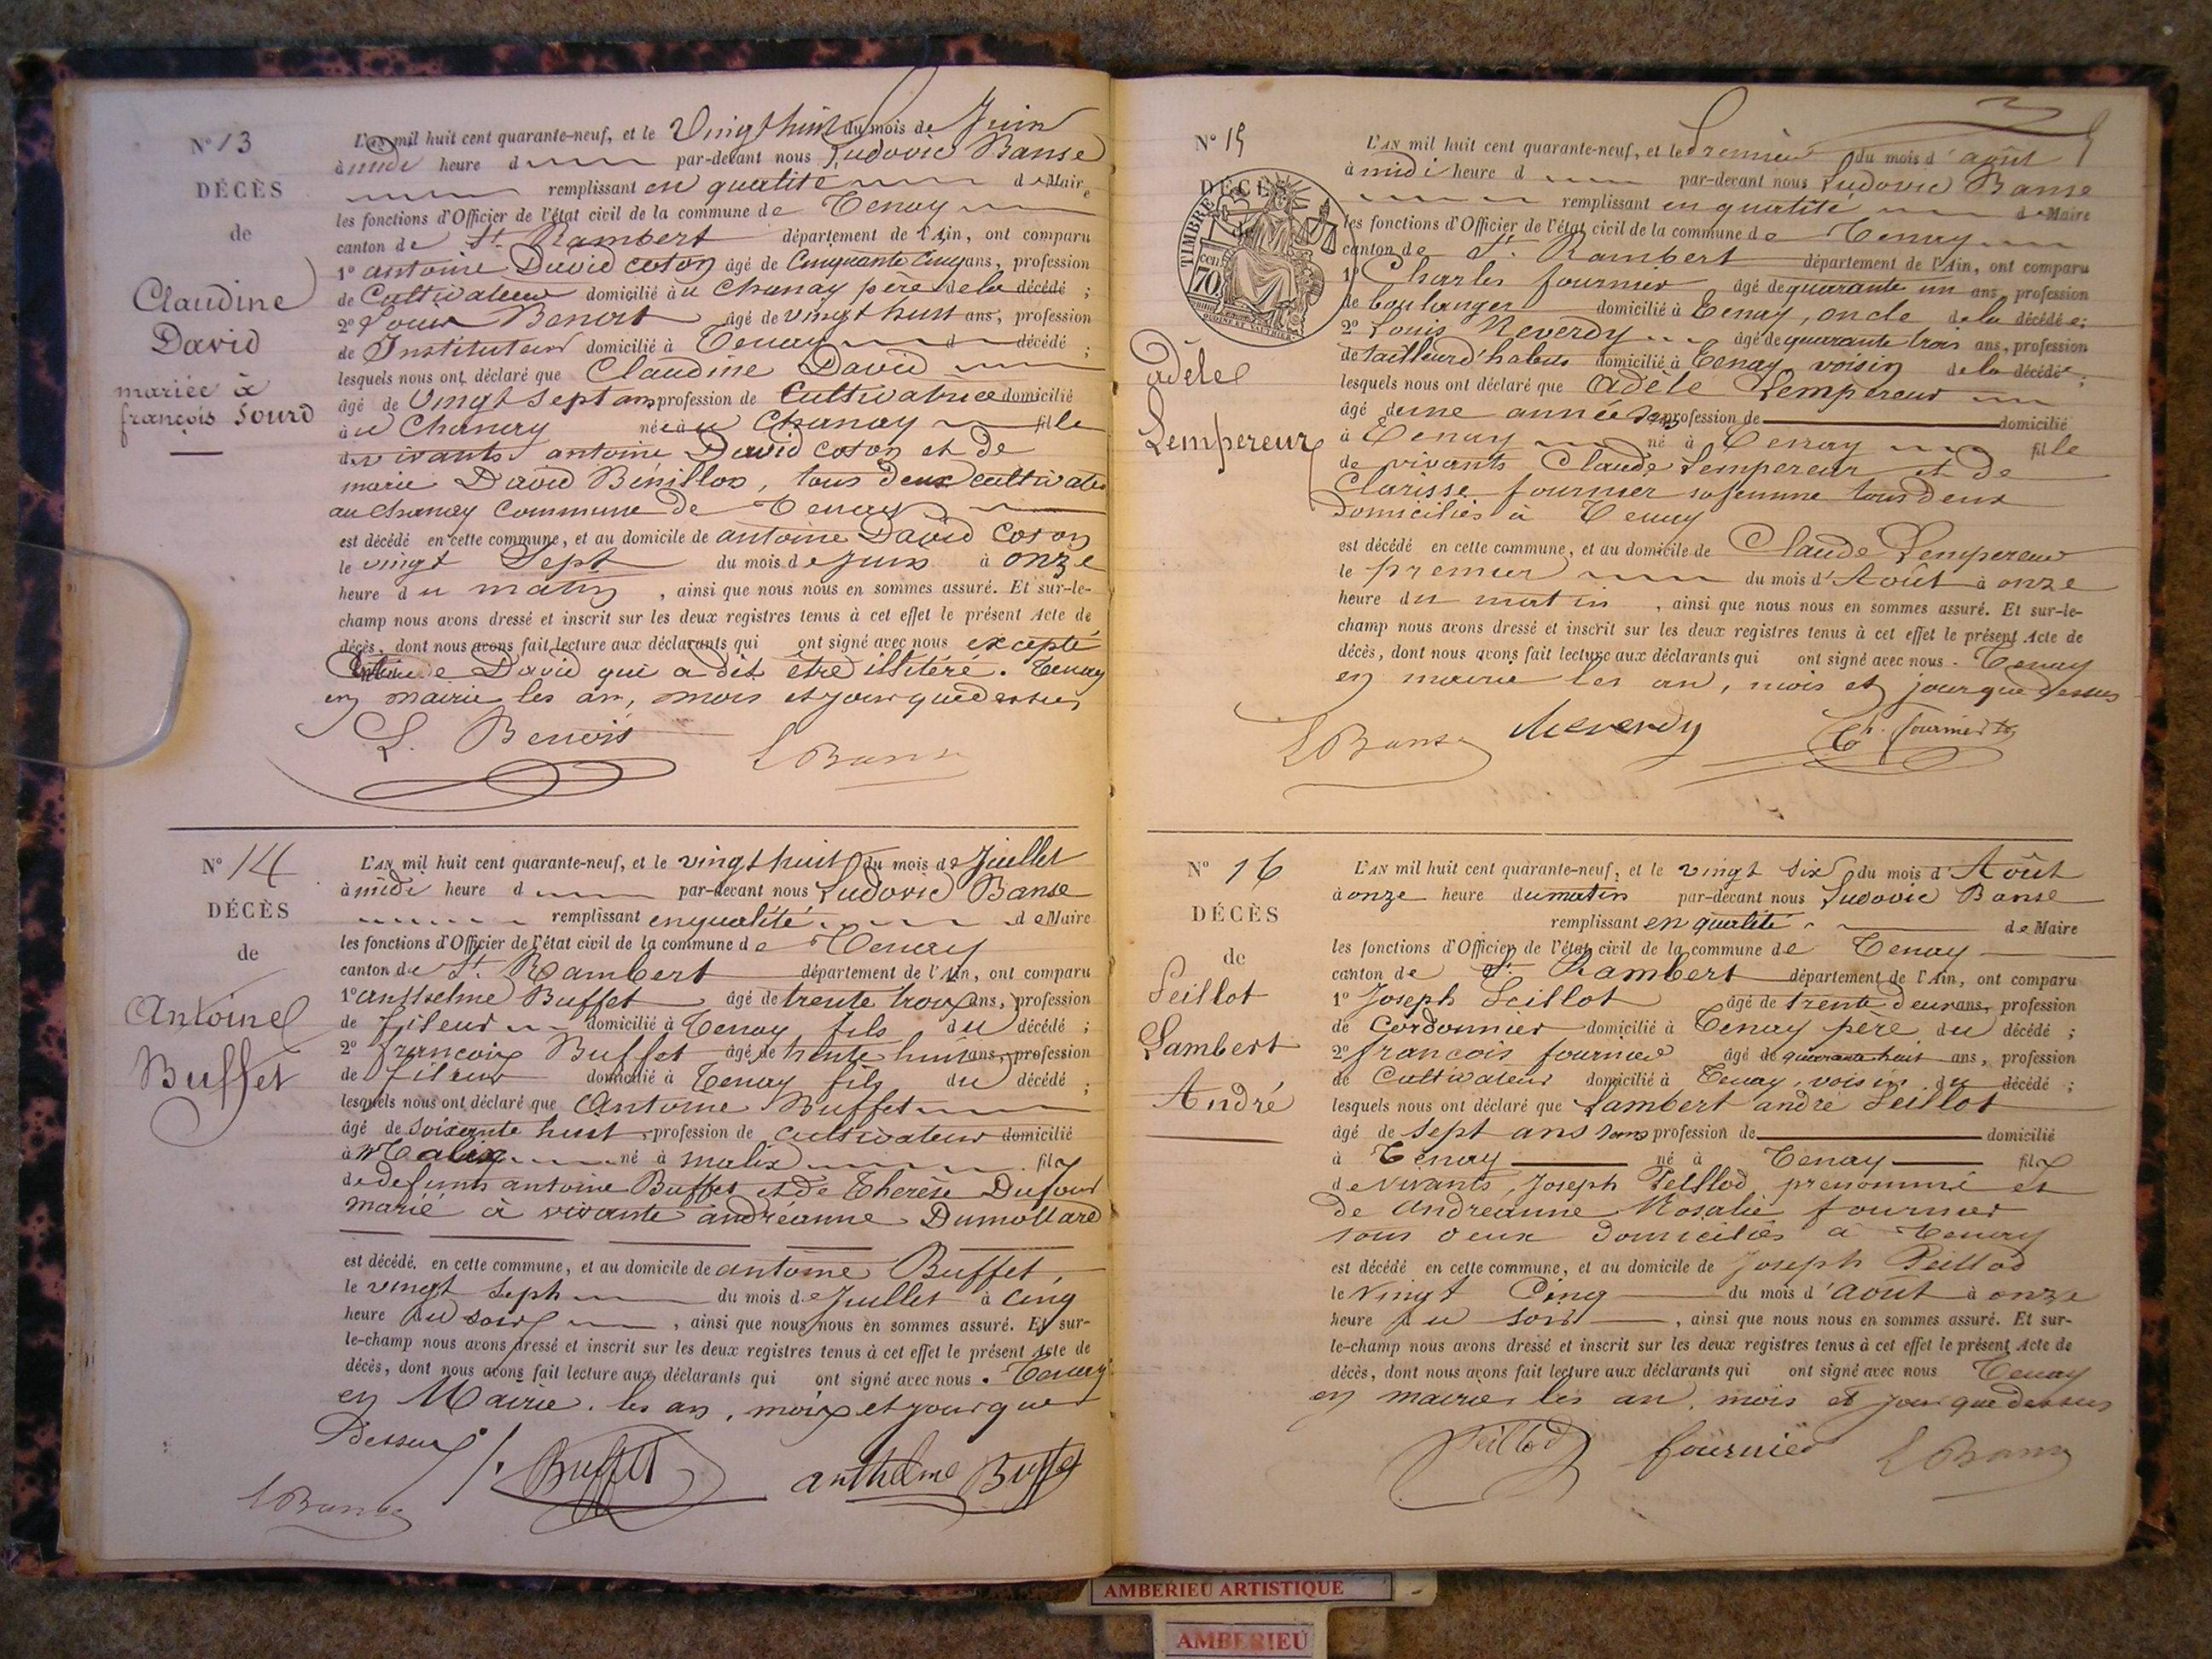 N° 13
DÉCÈS
de
Claudine
David
mariée à
françois Sourd
L'AN mil huit cent quarante-neuf, et le Vingt huit du mois de Juin
à midi heure d par-devant nous Ludovic Banse
remplissant en qualité de Maire
les fonctions d'Officier de l'état civil de la commune de Tenay
canton de St. Rambert département de l'Ain, ont comparu
1° antoine David coton âgé de Cinquante Cinq ans, profession
de Cultivateur domicilié au Chanay père de la décédé ;
2° Louis Benoit âgé de vingt huit ans, profession
de Instituteur domicilié à Tenay d décédé ;
lesquels nous ont déclaré que Claudine David
âgé de Vingt sept ans profession de Cultivatrice domicilié
au Chanay née au Chanay fille
de vivants antoine David coton et de
marie David Bénillon, tous deux cultivater
au chanay Commune de Tenay
est décédé en cette commune, et au domicile de antoine David Coton
le vingt Sept du mois de juin à onze
heure du matin, ainsi que nous nous en sommes assuré. Et sur-le-
champ nous avons dressé et inscrit sur les deux registres tenus à cet effet le présent Acte de
décès, dont nous avons fait lecture aux déclarants qui ont signé avec nous excepté
David qui a dit être illitéré. Tenay
en mairie les an, mois et jour que dessus
L. Benoit
L Banse
N° 14
DÉCÈS
de
Antoine
Buffet
L'AN mil huit cent quarante-neuf, et le vingt huit du mois de Juillet
à midi heure d par-devant nous Ludovic Banse
remplissant en qualité de Maire
les fonctions d'Officier de l'état civil de la commune de Tenay
canton de St. Rambert département de l'Ain, ont comparu
1° antlselme Buffet âgé de trente trois ans, profession
de fileur domicilié à Tenay fils du décédé ;
2° francois Buffet âgé de trente huit ans, profession
de fileur domicilié à Tenay fils du décédé ;
lesquels nous ont déclaré que Antoine Buffet
âgé de soixante huit profession de cultivateur domicilié
à Malix né à malix fils
de defunts antoine Buffet et de Therèse Dufour
marié à vivante andréanne Dumollard
est décédé. en cette commune, et au domicile de antoine Buffet,
le vingt Sept du mois de Juillet à cinq
heure du soir, ainsi que nous nous en sommes assuré. Et sur-
le-champ nous avons dressé et inscrit sur les deux registres tenus à cet effet le présent Acte de
décès, dont nous avons fait lecture aux déclarants qui ont signé avec nous. Tenay
en Mairie. les an, mois et jour que
Dessus
L Banse
f. Buffet
anthelme Buffet
N° 15
DÉCÈS
de
TIMBRE
70 cen
Adèle
Lempereur
L'AN mil huit cent quarante-neuf, et le Premier du mois d'août
à midi heure d par-devant nous Ludovic Banse
remplissant en qualité de Maire
les fonctions d'Officier de l'état civil de la commune de Tenay
canton de St. Rambert département de l'Ain, ont comparu
1° Charles fournier âgé de quarante un ans, profession
de boulanger domicilié à Tenay, oncle de la décédée ;
2° Louis Reverdy âgé de quarante trois ans, profession
de tailleur d'habits domicilié à Tenay voisin de la décédée ;
lesquels nous ont déclaré que Adèle Lempereur
âgé d'une année sans profession de domicilié
à Tenay né à Tenay fille
de vivants Claude Lempereur et de
Clarisse fournier sa femme tous deux
Domiciliés à Tenay
est décédé en cette commune, et au domicile de Claude Lempereur
le premier du mois d'Août à onze
heure du matin, ainsi que nous nous en sommes assuré. Et sur-le-
champ nous avons dressé et inscrit sur les deux registres tenus à cet effet le présent Acte de
décès, dont nous avons fait lecture aux déclarants qui ont signé avec nous. Tenay
en mairie les an, mois et jour que dessus
L Banse
Reverdy
Ch. fournier
N° 16
DÉCÈS
de
Peillot
Lambert
André
L'AN mil huit cent quarante-neuf, et le vingt six du mois d'Août
à onze heure du matin par-devant nous Ludovic Banse
remplissant en qualité de Maire
les fonctions d'Officier de l'état civil de la commune de Tenay
canton de St. Rambert département de l'Ain, ont comparu
1° Joseph Peillot âgé de trente deux ans, profession
de Cordonnier domicilié à Tenay père du décédé ;
2° francois fournier âgé de quarante huit ans, profession
de Cultivateur domicilié à Tenay, voisin du décédé ;
lesquels nous ont déclaré que Lambert andré Peillot
âgé de sept ans sans profession de domicilié
à Tenay né à Tenay fils
de vivants, Joseph Peillod, prenommé et
de Andreanne Rosalie fournier
tous deux Domiciliés à Tenay
est décédé en cette commune, et au domicile de Joseph Peillod
le Vingt Cinq du mois d'août à onze
heure du soir, ainsi que nous nous en sommes assuré. Et sur-
le-champ nous avons dressé et inscrit sur les deux registres tenus à cet effet le présent Acte de
décès, dont nous avons fait lecture aux déclarants qui ont signé avec nous Tenay
en mairie les an, mois et jour que dessus
Peillod
fournier
L Banse
AMBERIEU ARTISTIQUE
AMBERIEU